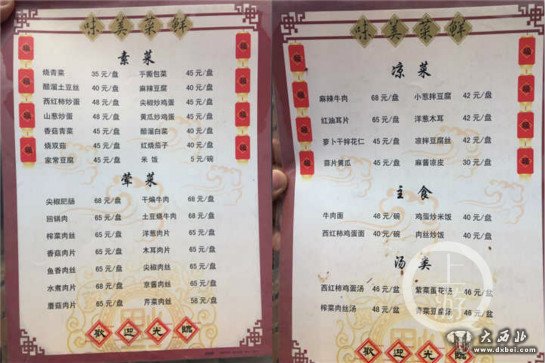 味美菜鲜
素菜
烧青菜 35元/盘 手撕包菜 45元/盘
醋溜土豆丝 40元/盘 麻辣豆腐 40元/盘
西红柿炒蛋 40元/盘 尖椒炒鸡蛋 45元/盘
山葱炒蛋 48元/盘 黄瓜炒鸡蛋 45元/盘
香菇青菜 45元/盘 醋溜白菜 40元/盘
烧双菇 45元/盘 红烧茄子 40元/盘
家常豆腐 45元/盘 米饭 5元/碗
荤菜
尖椒肥肠 68元/盘 干煸牛肉 68元/盘
回锅肉 68元/盘 土豆烧牛肉 68元/盘
榨菜肉丝 65元/盘 洋葱肉片 65元/盘
香菇肉片 65元/盘 木耳肉片 65元/盘
鱼香肉丝 65元/盘 尖椒肉丝 65元/盘
水煮肉片 68元/盘 京酱肉丝 65元/盘
蘑菇肉片 65元/盘 芹菜肉丝 58元/盘
欢迎光临
味美菜鲜
凉菜
麻辣牛肉 68元/盘 小葱拌豆腐 42元/盘
红油耳片 65元/盘 洋葱木耳 42元/盘
萝卜干拌花仁 45元/盘 凉拌豆腐丝 42元/盘
蒜片黄瓜 45元/盘 麻酱凉皮 30元/盘
主食
牛肉面 48元/碗 鸡蛋炒米饭 40元/盘
西红柿鸡蛋面 40元/碗 肉丝炒饭 40元/盘
汤类
西红柿鸡蛋汤 46元/盆 紫菜蛋花汤 46元/盆
榨菜肉丝汤 48元/盆 芹菜豆腐汤 46元/盆
欢迎光临
上游
大西北
www.dxbei.com